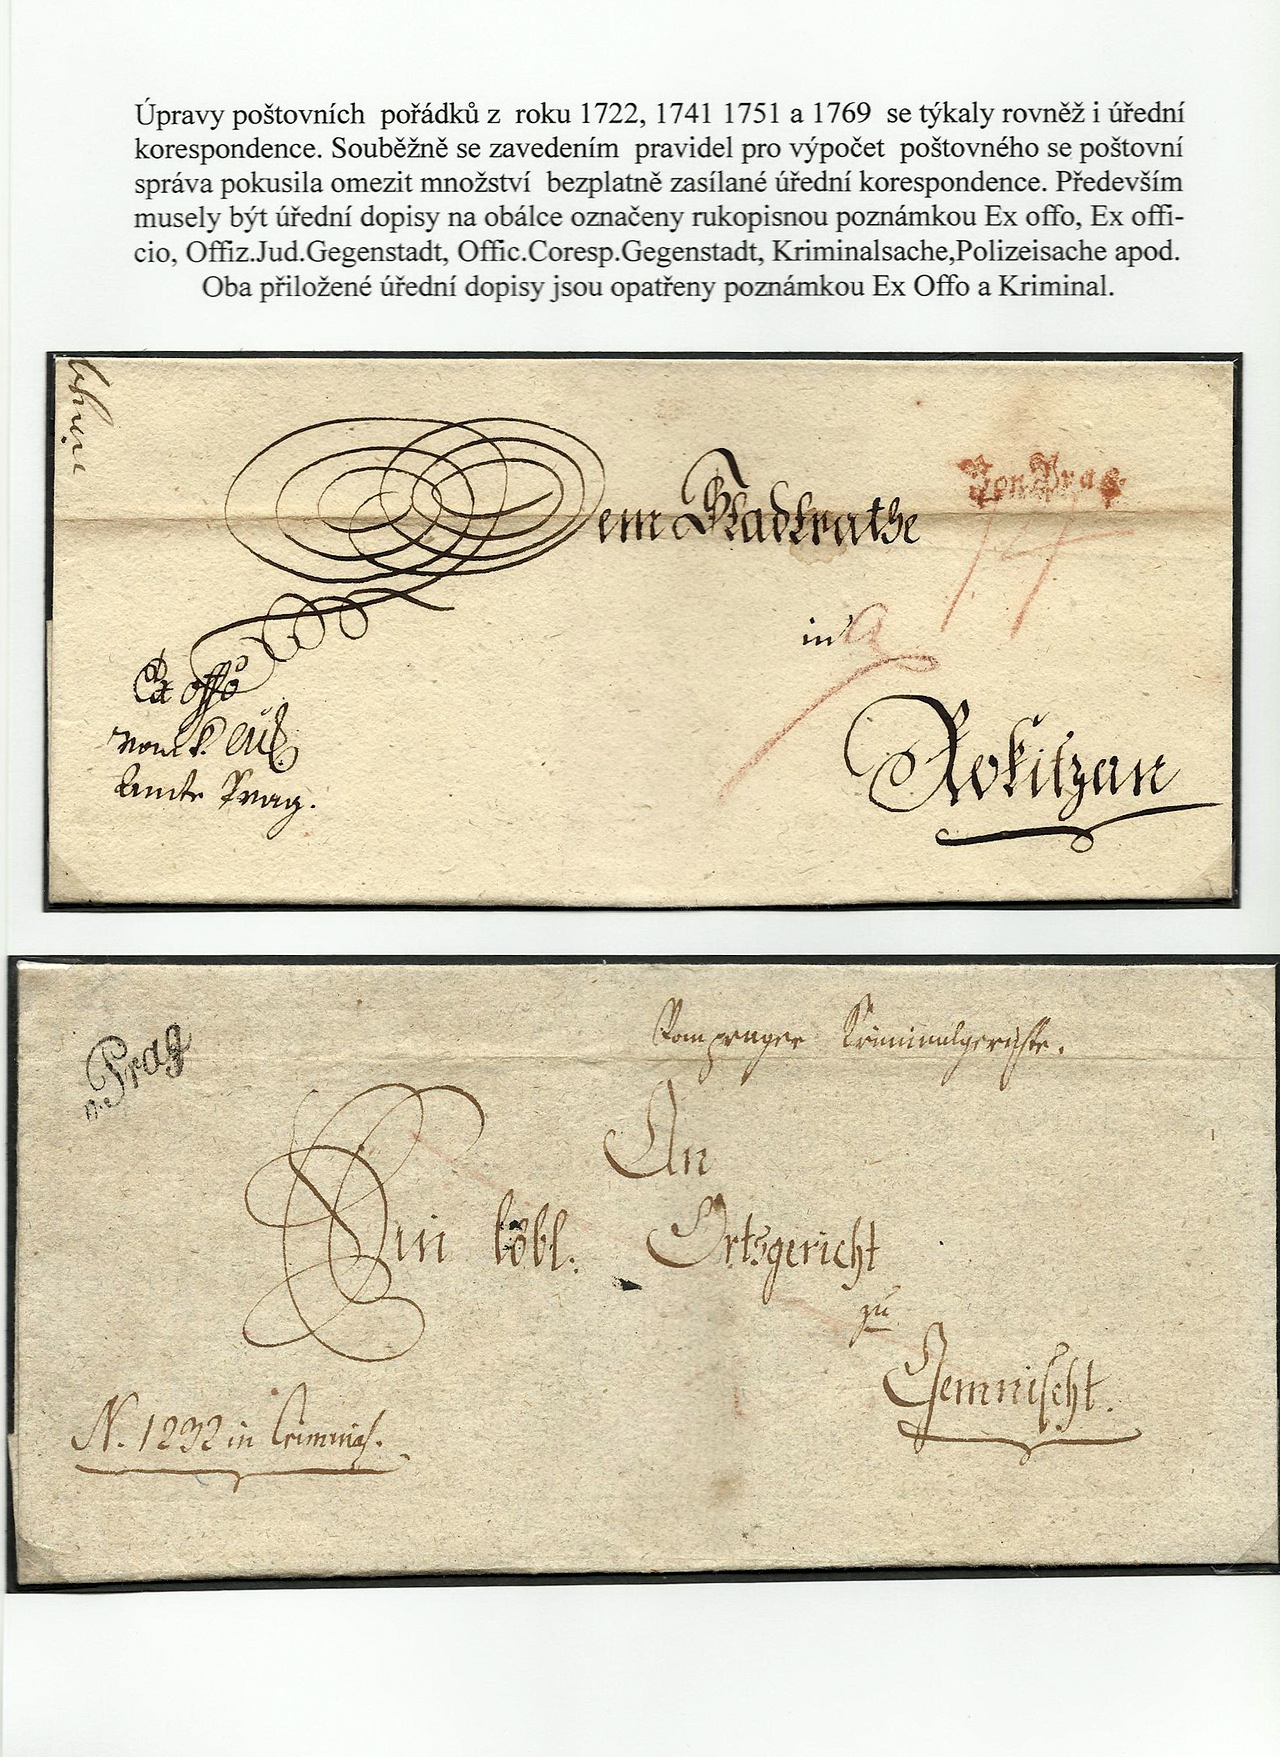 Úpravy poštovních pořádků z roku 1722, 1741 1751 a 1769 se týkaly rovněž i úřední
korespondence. Souběžně se zavedením pravidel pro výpočet poštovného se poštovní
správa pokusila omezit množství bezplatně zasílané úřední korespondence. Především
musely být úřední dopisy na obálce označeny rukopisnou poznámkou Ex offo, Ex offi-
cio, Offiz.Jud.Gegenstadt, Offic.Coresp.Gegenstadt, Kriminalsache,Polizeisache apod.
Oba přiložené úřední dopisy jsou opatřeny poznámkou Ex Offo a Kriminal.
Von Prag.
Dem Stadtrathe
in
Ex offo
vom k.
Amte Prag.
Rokitzan
v. Prag
Vom prager Kriminalgerichte.
An
Ein löbl. Ortsgericht
zu
Jemnischt.
N. 1292 in Criminal.